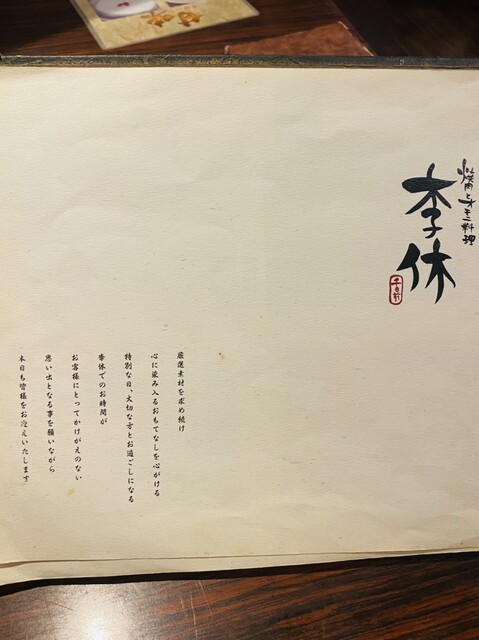 焼肉とオモニ料理
李休
千日前
厳選素材を求め続け
心に染み入るおもてなしを心がける
特別な日、大切な方とお過ごしになる
李休でのお時間が
お客様にとってかけがえのない
思い出となる事を願いながら
本日も皆様をお迎えいたします